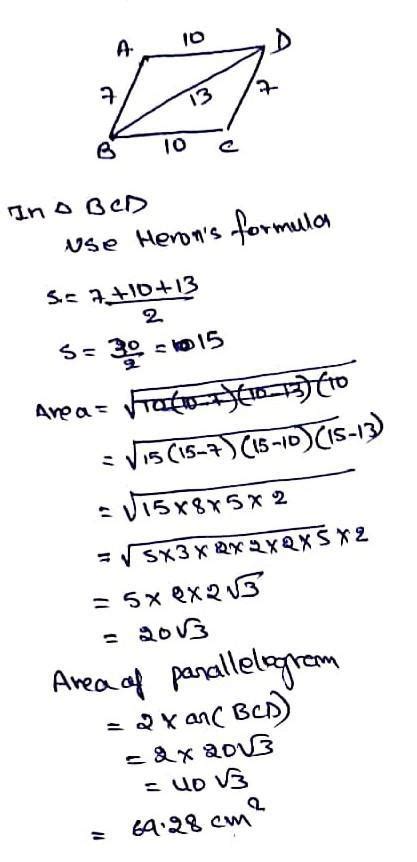 A 10 D
7 13 7
B 10 C
In △ BCD
Use Heron's formula
S = 7+10+13/2
S = 30/2 = 15
Area = √10(10-7)(10-13)(10
= √15(15-7)(15-10)(15-13)
= √15×8×5×2
= √5×3×2×2×2×5×2
= 5×2×2√3
= 20√3
Area of parallelogram
= 2×ar(BCD)
= 2×20√3
= 40√3
= 69.28 cm²